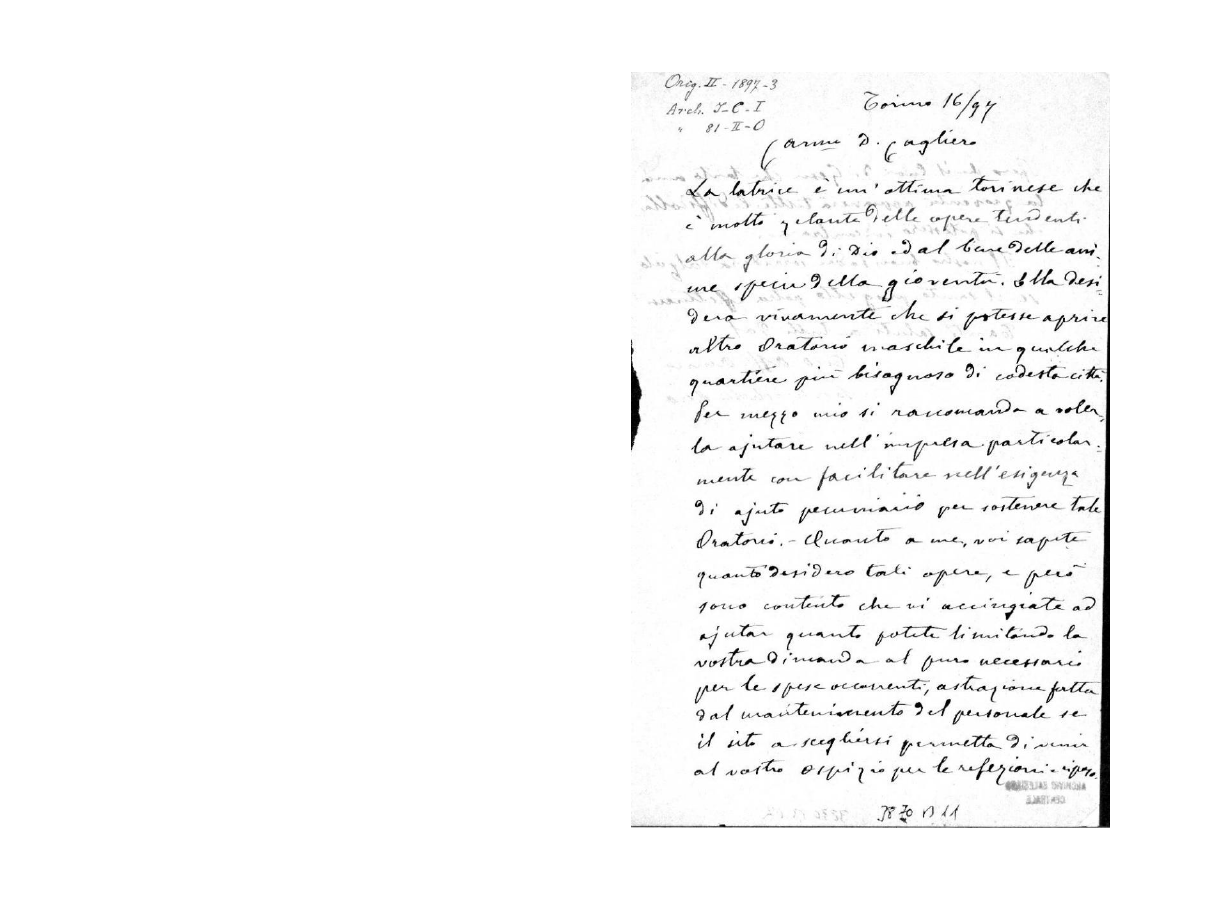 Orig. II - 1897-3
Arch. I-C-I
" 81-II-O
Torino 16/97
Carmo D. Cagliero
La latrice è un' ottima torinese che
è molto zelante delle opere tendenti
alla gloria di Dio ed al bene delle ani-
me specie della gioventù. Ella desi-
dera vivamente che si potesse aprire
altro Oratorio maschile in qualche
quartiere più bisognoso di codesta città.
Per mezzo mio si raccomanda a voler-
la ajutare nell' impresa particolar-
mente con facilitare nell' esigenza
di ajuto pecuniario per sostenere tale
Oratorio. - Quanto a me, voi sapete
quanto desidero tali opere, e però
sono contento che vi accingiate ad
ajutar quanto potete limitando la
vostra dimanda al puro necessario
per le spese occorrenti, astrazione fatta
dal mantenimento del personale se
il sito a scegliersi permetta di venir
al vostro Ospizio per le refezioni e riposo.
ARCHIVIO SALESIANO
CENTRALE
3830 B 11